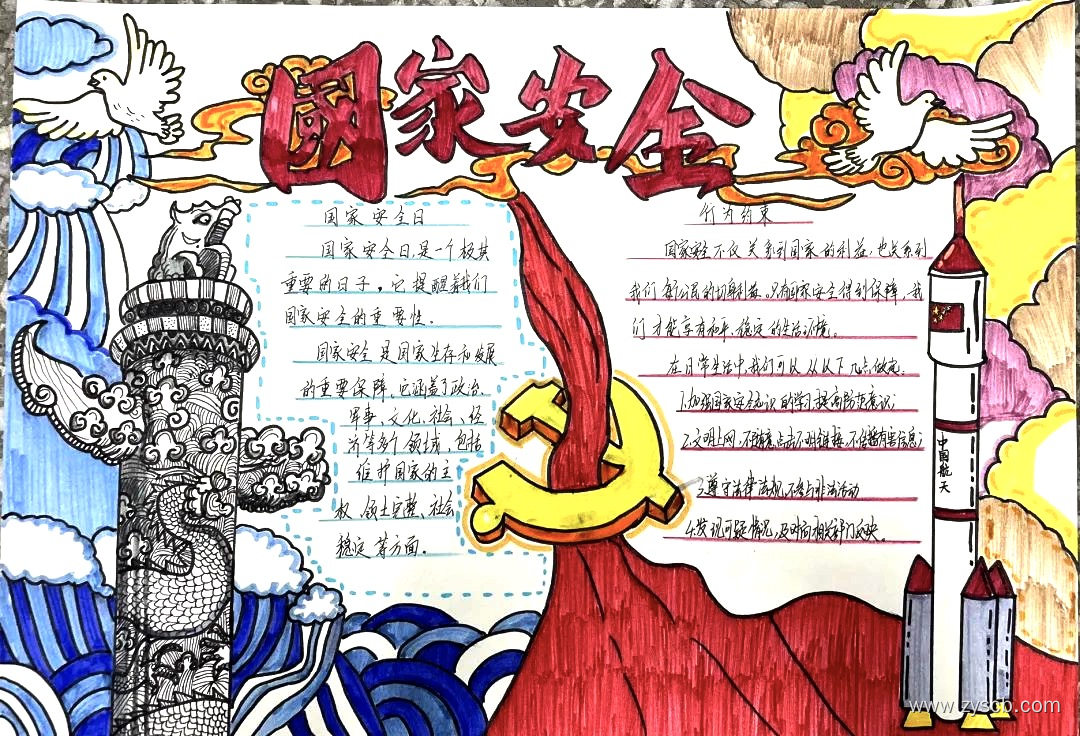 國家安全
国家安全日
国家安全日,是一个极其
重要的日子。它提醒着我们
国家安全的重要性。
国家安全是国家生存和发展
的重要保障,它涵盖了政治
军事、文化、社会、经
济等多个领域,包括
维护国家的主
权、领土完整、社会
稳定等方面。
行为约束
国家安全不仅关系到国家的利益,也关系到
我们每个公民的切身利益。只有国家安全得到保障,我
们才能享有和平、稳定的生活环境。
在日常生活中,我们可以从以下几点做起:
1.加强国家安全知识的学习,提高防范意识;
2.文明上网,不随意点击不明链接,不传播有害信息;
3.遵守法律法规,不参与非法活动
4.发现可疑情况,及时向相关部门反映。
中国航天
www.zyscb.com